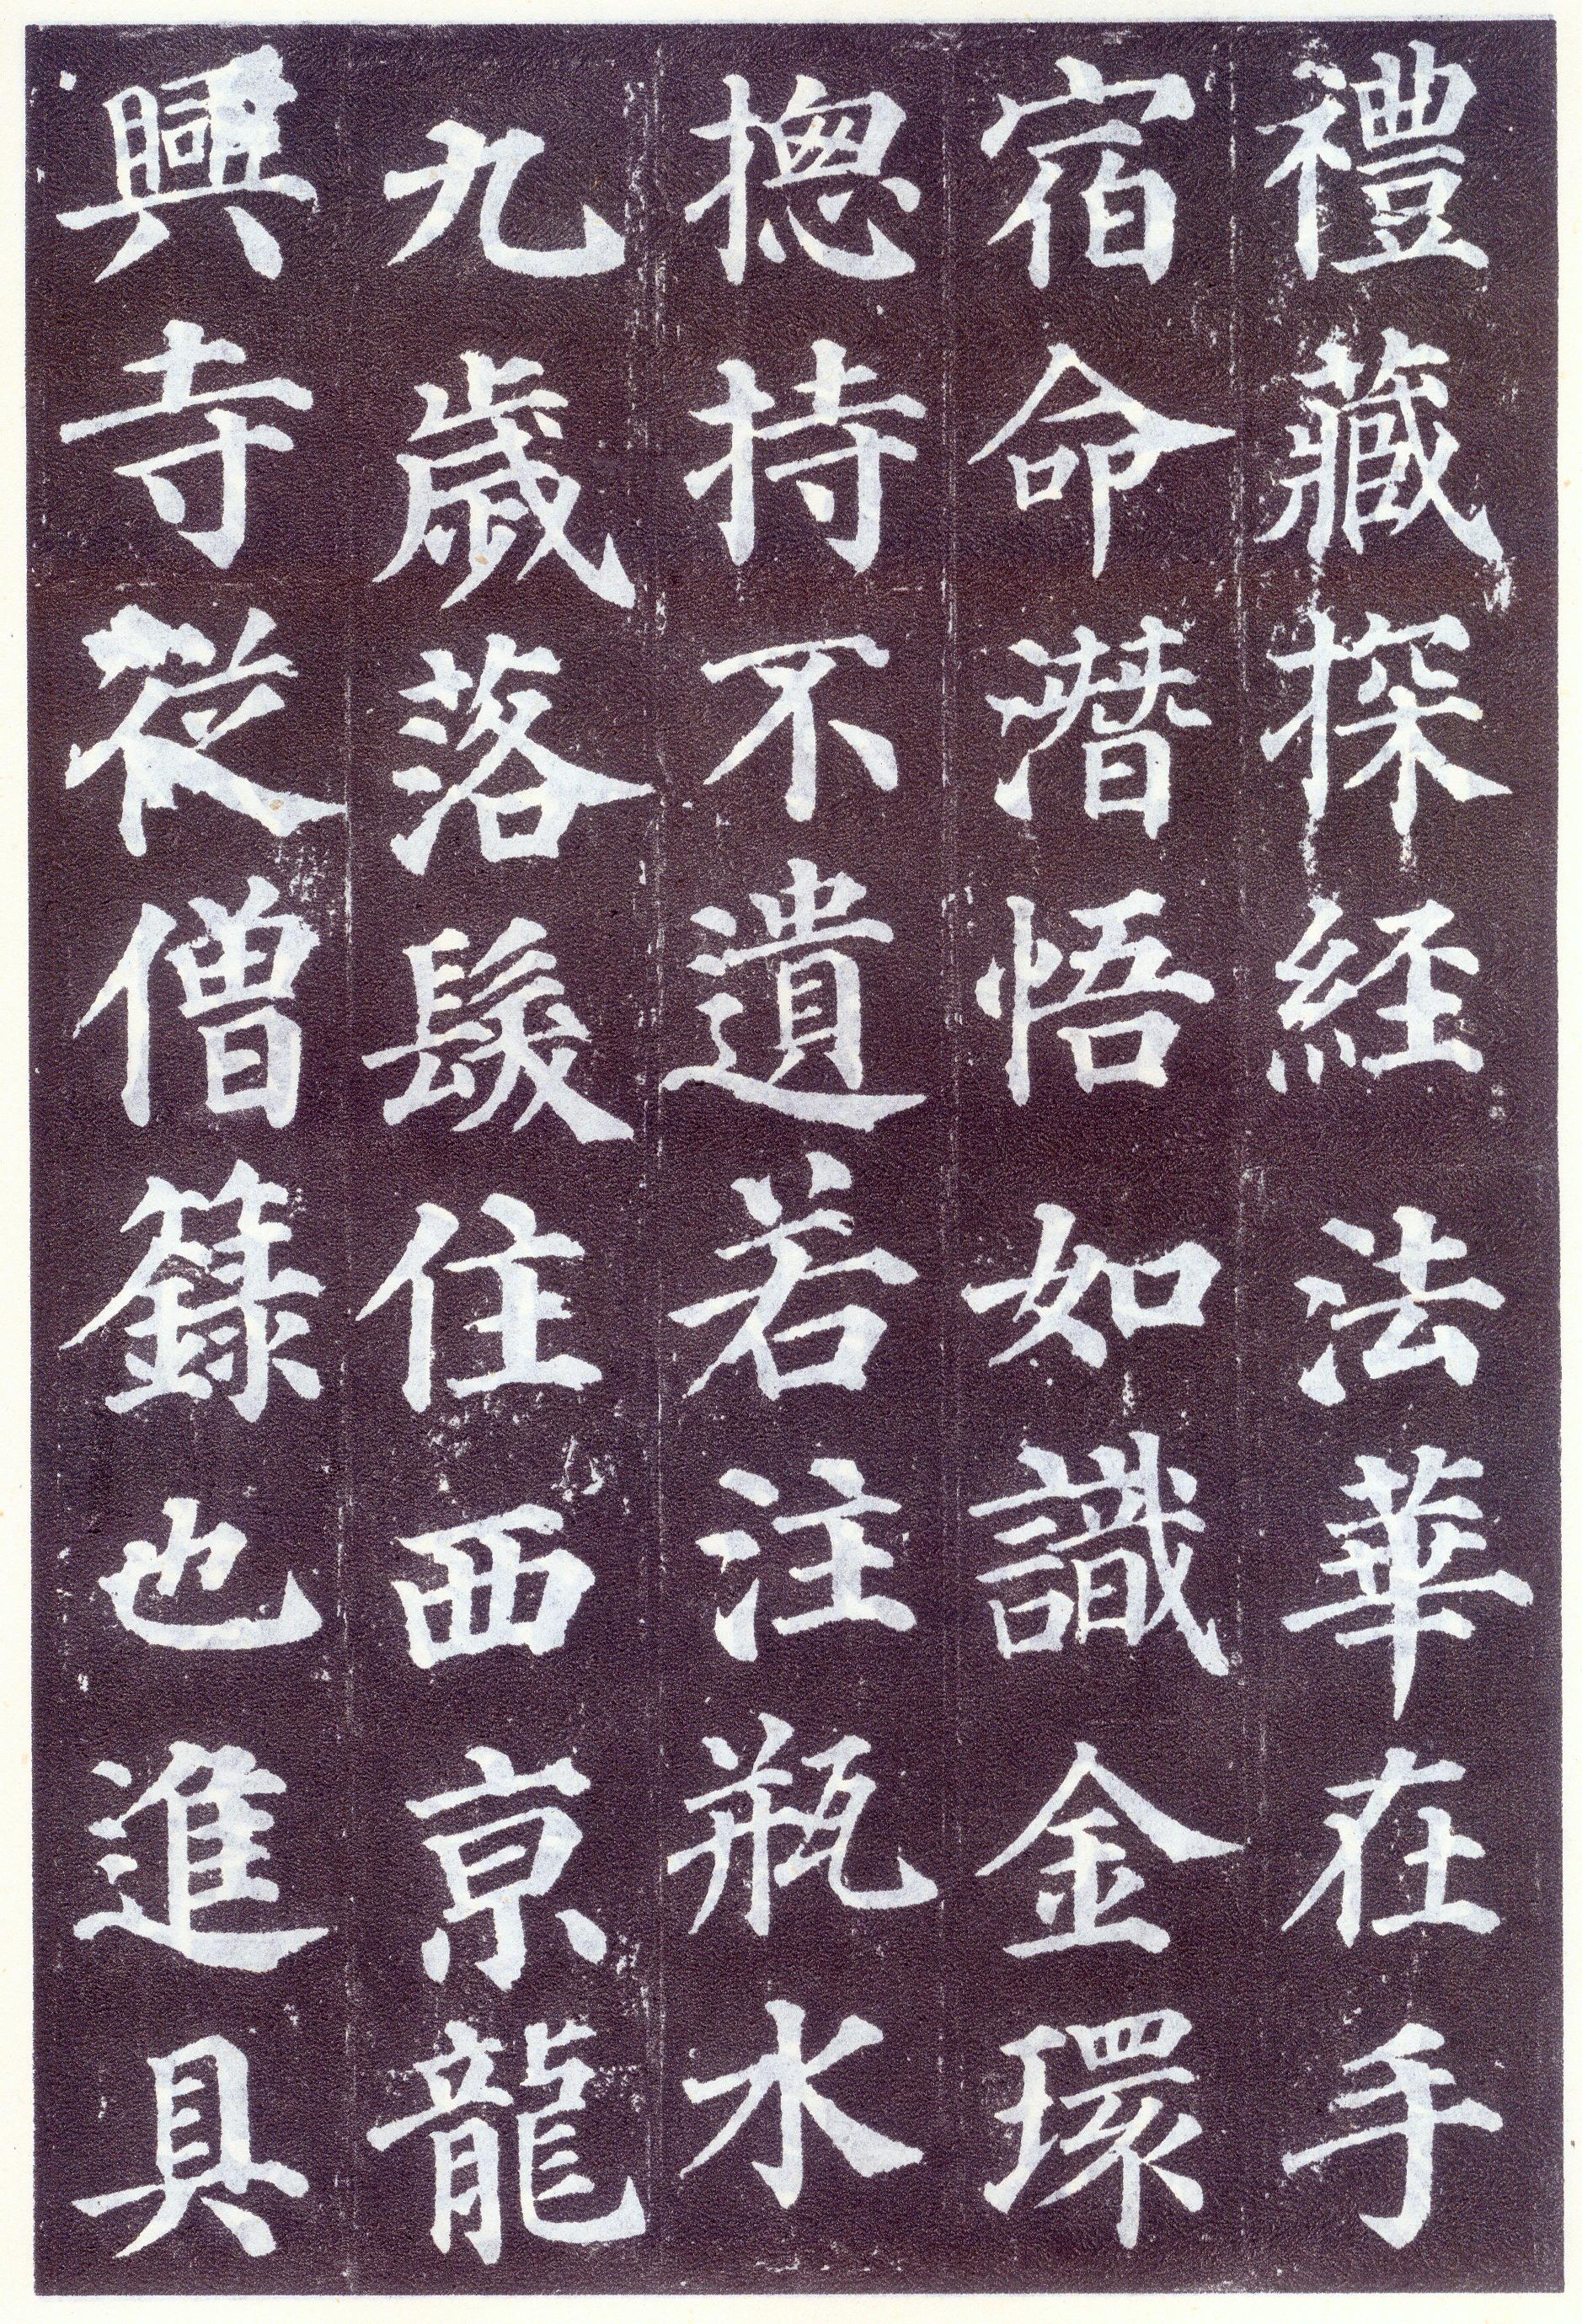 禮藏探經法華在手
宿命潛悟如識金環
揔持不遺若注瓶水
九歲落髮住西京龍
興寺從僧籙也進具